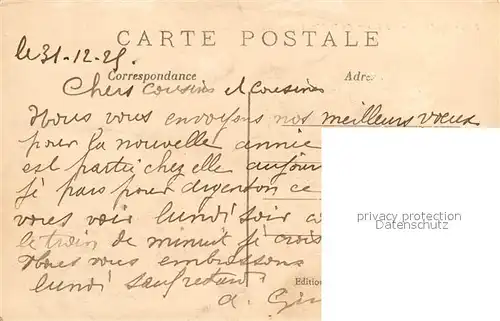 CARTE POSTALE
le 31-12-25.
Correspondance
Adre
Chers cousins et cousines
Nous vous envoyons nos meilleurs vœux
pour la nouvelle année
est partie chez elle aujour
je pars pour argenton ce
vous voir lundi soir
le train de minuit je crois
Nous vous embrassons
lundi sauf retard
Edition
a.
privacy protection
Datenschutz